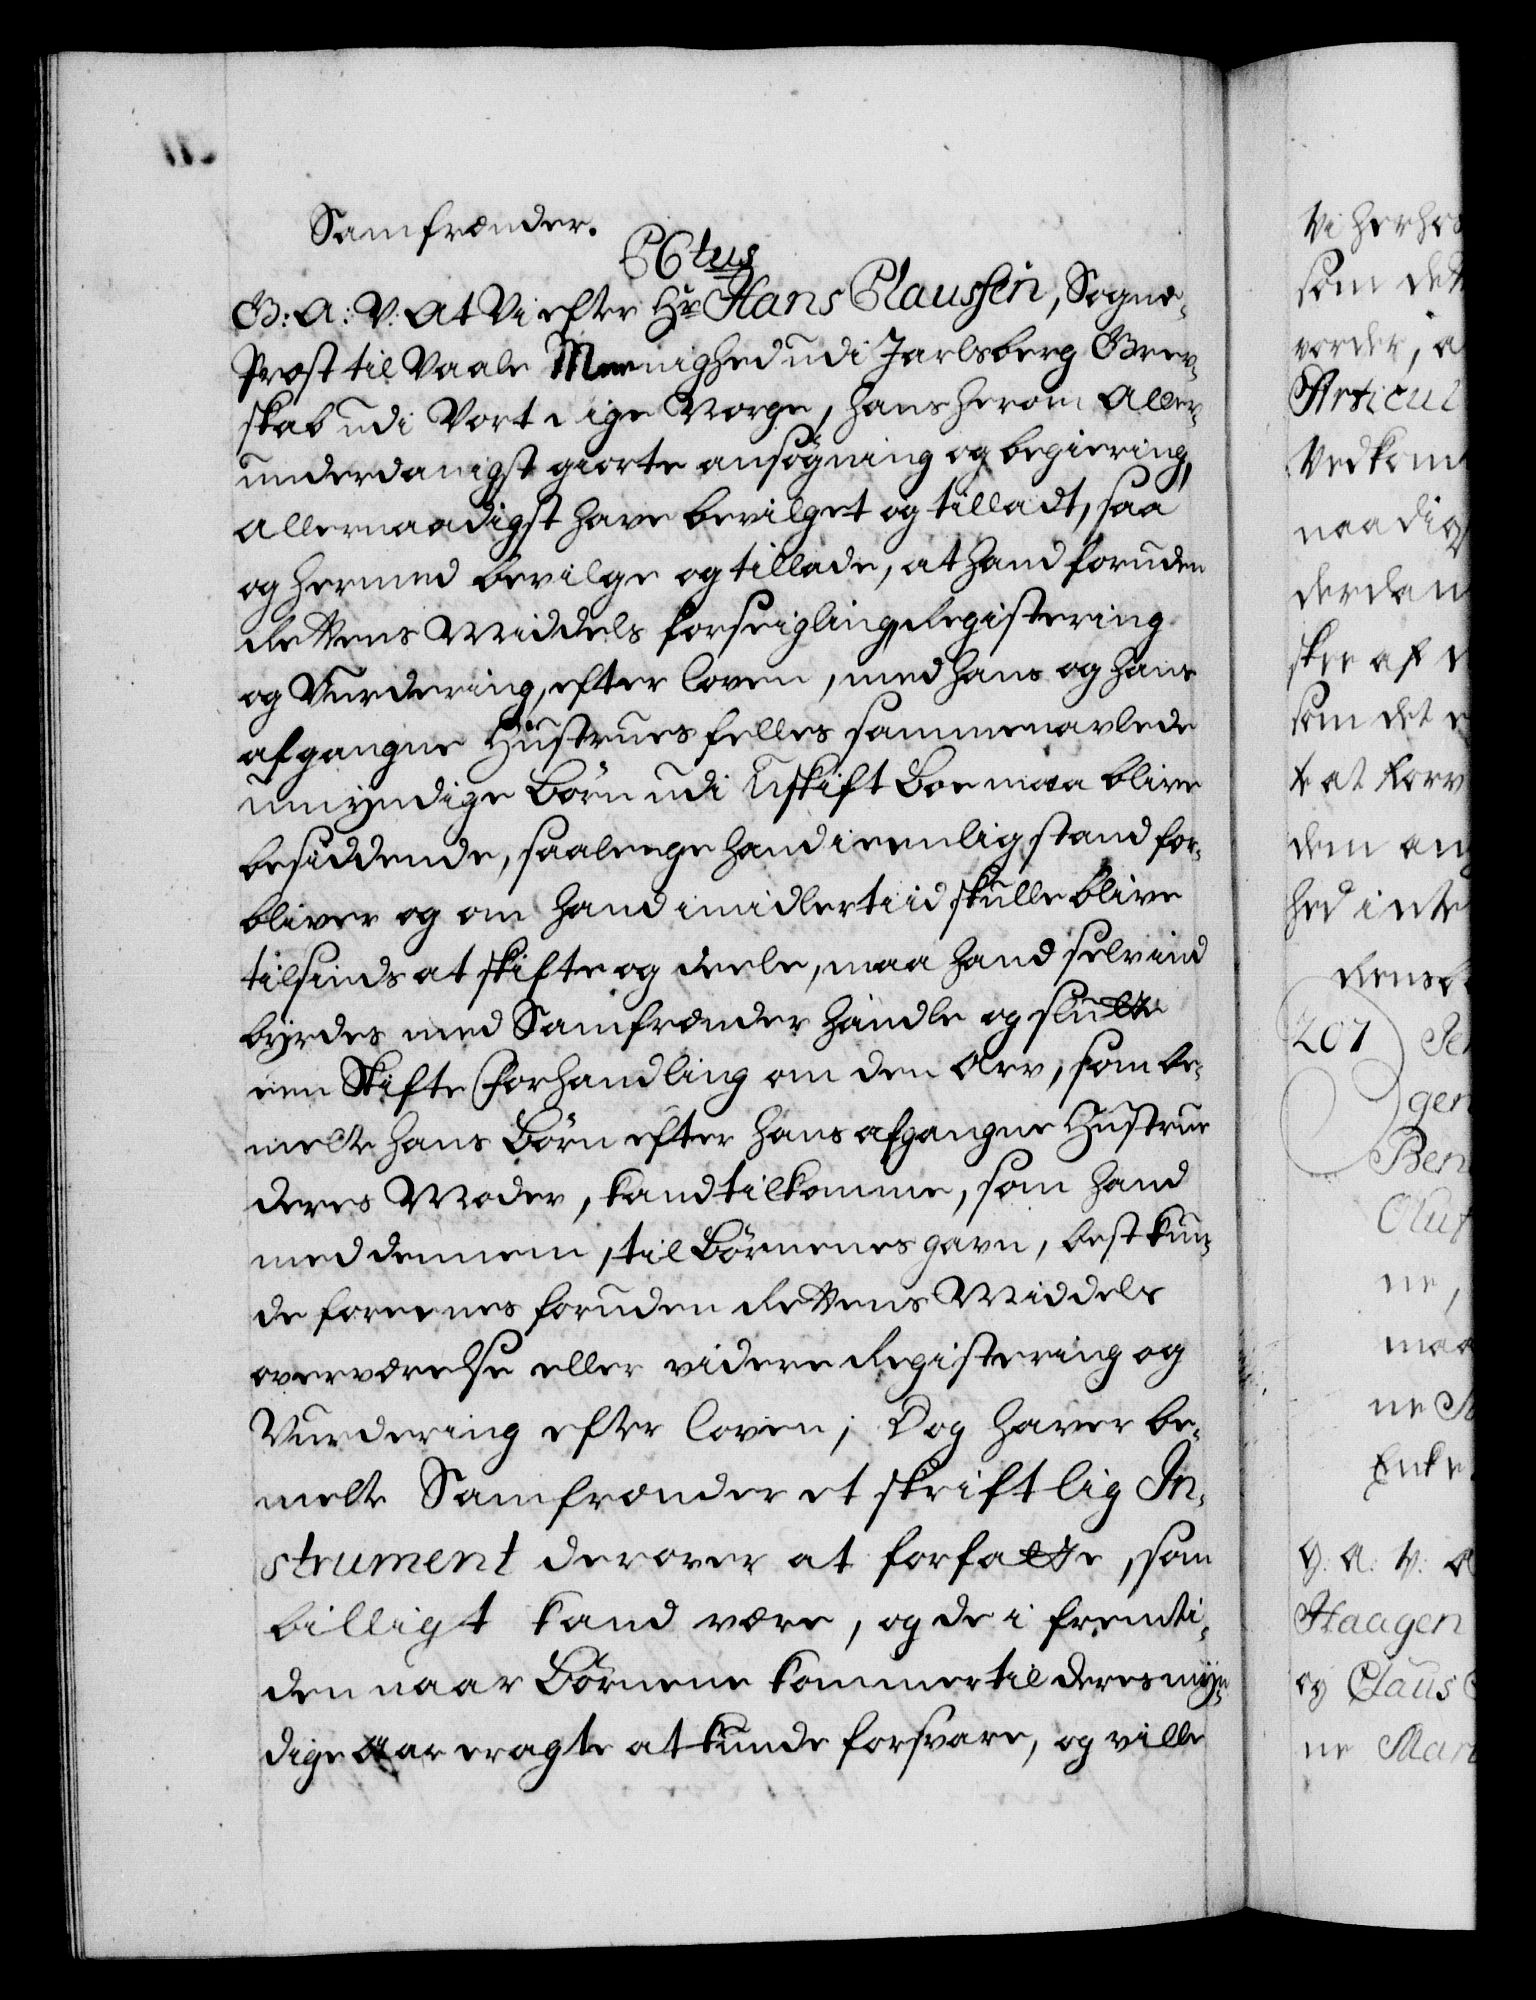 Samfrænder.
C6tus
G: A: V: At Vi efter Hr Hans Claussen, Sogne-
Præst til Vaale Meenighed udi Jarlsberg Grev-
skab udi Vort Rige Norge, hans herom Aller-
underdanigst giorte ansøgning og begiering,
allernaadigst have bevilget og tilladt, saa
og hermed bevilge og tillade, at hand foruden
Rettens Middels forseigling, Registering
og Vurdering, efter loven, med hans og hans
afgangne Hustrues felles sammenavlede
umyndige Børn udi Uskift Boe maa blive
besiddende, saalenge hand i eenlig stand for-
bliver og om hand imidlertiid skulle blive
tilsinds at skifte og deele, maa hand selv ind
byrdes med Samfrænder handle og slutte
een Skifte Forhandling om den Arv, som be-
melte hans Børn efter hans afgangne Hustrue
deres Moder, kand tilkomme, som hand
med dennem, til Børnenes gavn, best kun-
de foreenes foruden Rettens Middels
overværelse eller videre Registering og
Vurdering efter loven; Dog haver be-
melte Samfrænder et skriftlig In-
strument derover at forfatte, som
billigt kand være, og de i fremti-
den naar Børnene kommer til deres myn-
dige Aar eragte at kunde forsvare, og ville
Vi herhos
som det
vorder, a
Articul
Vedkom
naadig
derdan
skee af
som det
t at forv
dem an
hed inte
Rensb
207
gen
Ben
Oluf
ne,
maa
ne
Enke
G: A: V: A
Haagen
og Claus
ne Mar